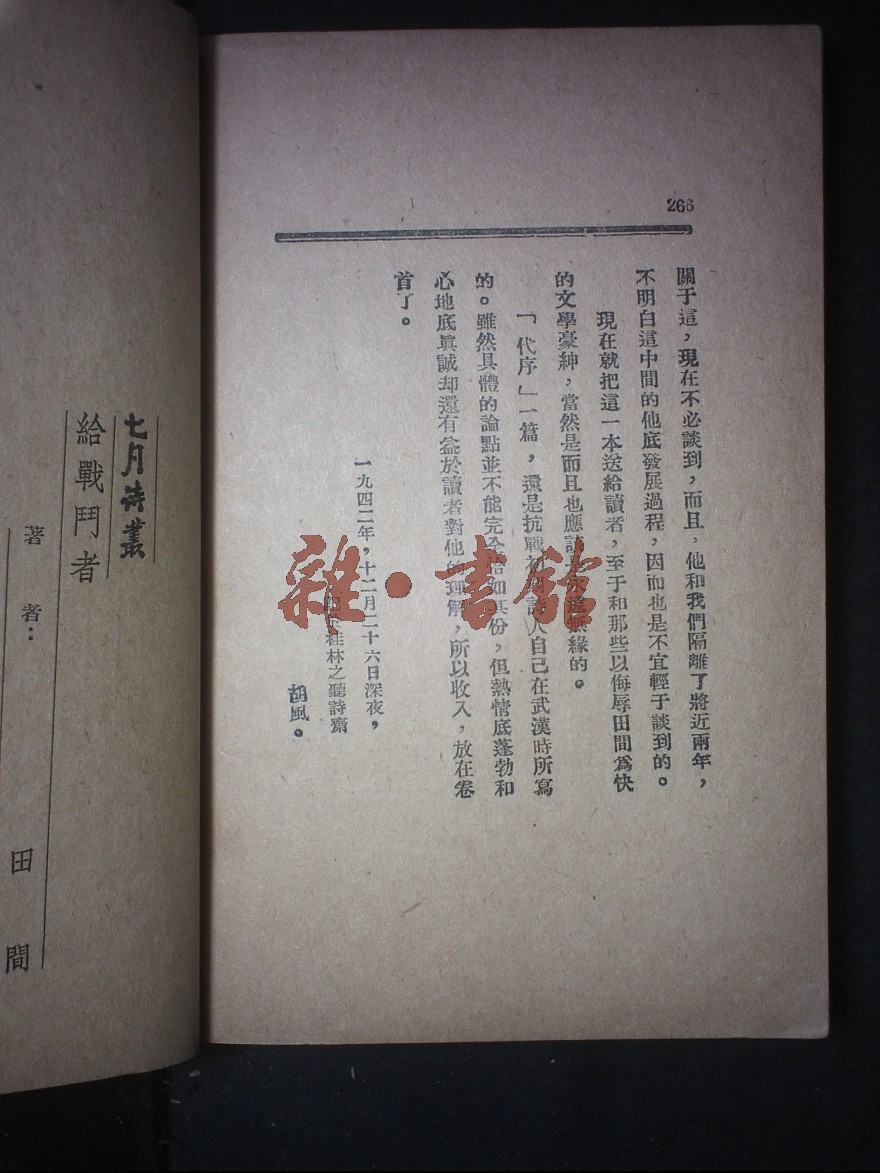 266
關于這，現在不必談到，而且，他和我們隔離了將近兩年，
不明白這中間的他底發展過程，因而也是不宜輕于談到的。
現在就把這一本送給讀者，至于和那些以侮辱田間爲快
的文學豪紳，當然是而且也應該是永遠無緣的。
「代序」一篇，還是抗戰初期詩人自己在武漢時所寫
的。雖然具體的論點並不能完全恰如其份，但熱情底蓬勃和
心地底眞誠却還有益於讀者對他的理解，所以收入，放在卷
首了。
一九四二年，十二月二十六日深夜，
桂林之聽詩齋
胡風。
七月詩叢
給戰鬥者
著者：
田間
雜·書館